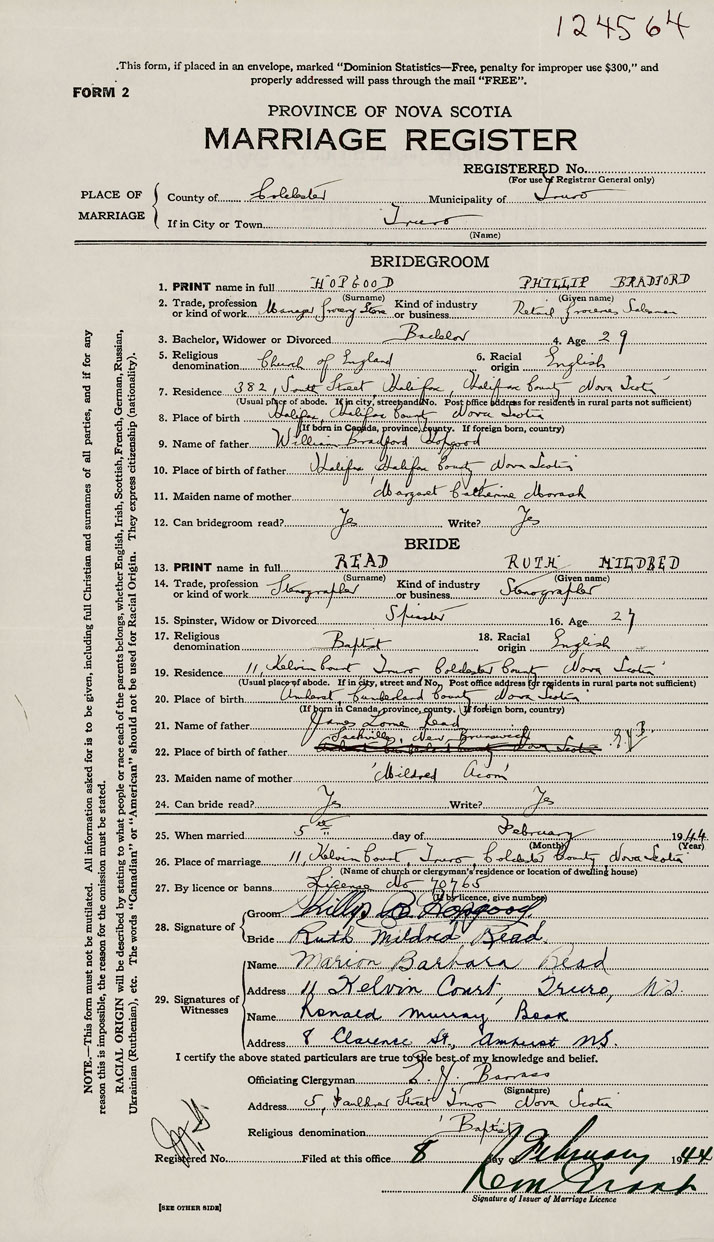 124564
.This form, if placed in an envelope, marked "Dominion Statistics—Free, penalty for improper use $300," and
properly addressed will pass through the mail "FREE".
FORM 2
PROVINCE OF NOVA SCOTIA
MARRIAGE REGISTER
REGISTERED No.
(For use of Registrar General only)
PLACE OF MARRIAGE
County of Colchester Municipality of Truro
If in City or Town Truro
(Name)
BRIDEGROOM
1. PRINT name in full HOPGOOD PHILLIP BRADFORD
(Surname) (Given name)
2. Trade, profession or kind of work Manager Grocery Store Kind of industry or business Retail Groceries Salesman
3. Bachelor, Widower or Divorced Bachelor 4. Age 29
5. Religious denomination Church of England 6. Racial origin English
7. Residence 382, South Street, Halifax, Halifax County Nova Scotia
(Usual place of abode. If in city, street and No. Post office address for residents in rural parts not sufficient)
8. Place of birth Halifax, Halifax County Nova Scotia
(If born in Canada, province, county. If foreign born, country)
9. Name of father William Bradford Hopgood
10. Place of birth of father Halifax Halifax County Nova Scotia
11. Maiden name of mother Margaret Catherine Morash
12. Can bridegroom read? Yes Write? Yes
BRIDE
13. PRINT name in full READ RUTH MILDRED
(Surname) (Given name)
14. Trade, profession or kind of work Stenographer Kind of industry or business Stenographer
15. Spinster, Widow or Divorced Spinster 16. Age 27
17. Religious denomination Baptist 18. Racial origin English
19. Residence 11, Kelvin Court, Truro Colchester County, Nova Scotia
(Usual place of abode. If in city, street and No. Post office address for residents in rural parts not sufficient)
20. Place of birth Amherst, Cumberland County Nova Scotia
(If born in Canada, province, county. If foreign born, country)
21. Name of father James Lorne Read
Sackville, New Brunswick
22. Place of birth of father Nova Scotia
23. Maiden name of mother Mildred Acorn
24. Can bride read? Yes Write? Yes
25. When married 5th day of February 1944
(Month) (Year)
26. Place of marriage 11, Kelvin Court, Truro, Colchester County, Nova Scotia
(Name of church or clergyman's residence or location of dwelling house)
27. By licence or banns License No 70765
(If by licence, give number)
28. Signature of
Groom Phillip B. Hopgood
Bride Ruth Mildred Read.
29. Signatures of Witnesses
Name Marion Barbara Read
Address 11 Kelvin Court, Truro, N.S.
Name Ronald Murray Beak
Address 8 Clarence St., Amherst N.S.
I certify the above stated particulars are true to the best of my knowledge and belief.
Officiating Clergyman Barrass
(Signature)
Address 5, Faulkner Street Truro Nova Scotia
Religious denomination Baptist
Registered No. Filed at this office 8 day of February 1944
Signature of Issuer of Marriage Licence
[SEE OTHER SIDE]
NOTE.—This form must not be mutilated. All information asked for is to be given, including full Christian and surnames of all parties, and if for any
reason this is impossible, the reason for the omission must be stated.
RACIAL ORIGIN will be described by stating to what people or race each of the parents belongs, whether English, Irish, Scottish, French, German, Russian,
Ukrainian (Ruthenian), etc. The words "Canadian" or "American" should not be used for Racial Origin. They express citizenship (nationality).